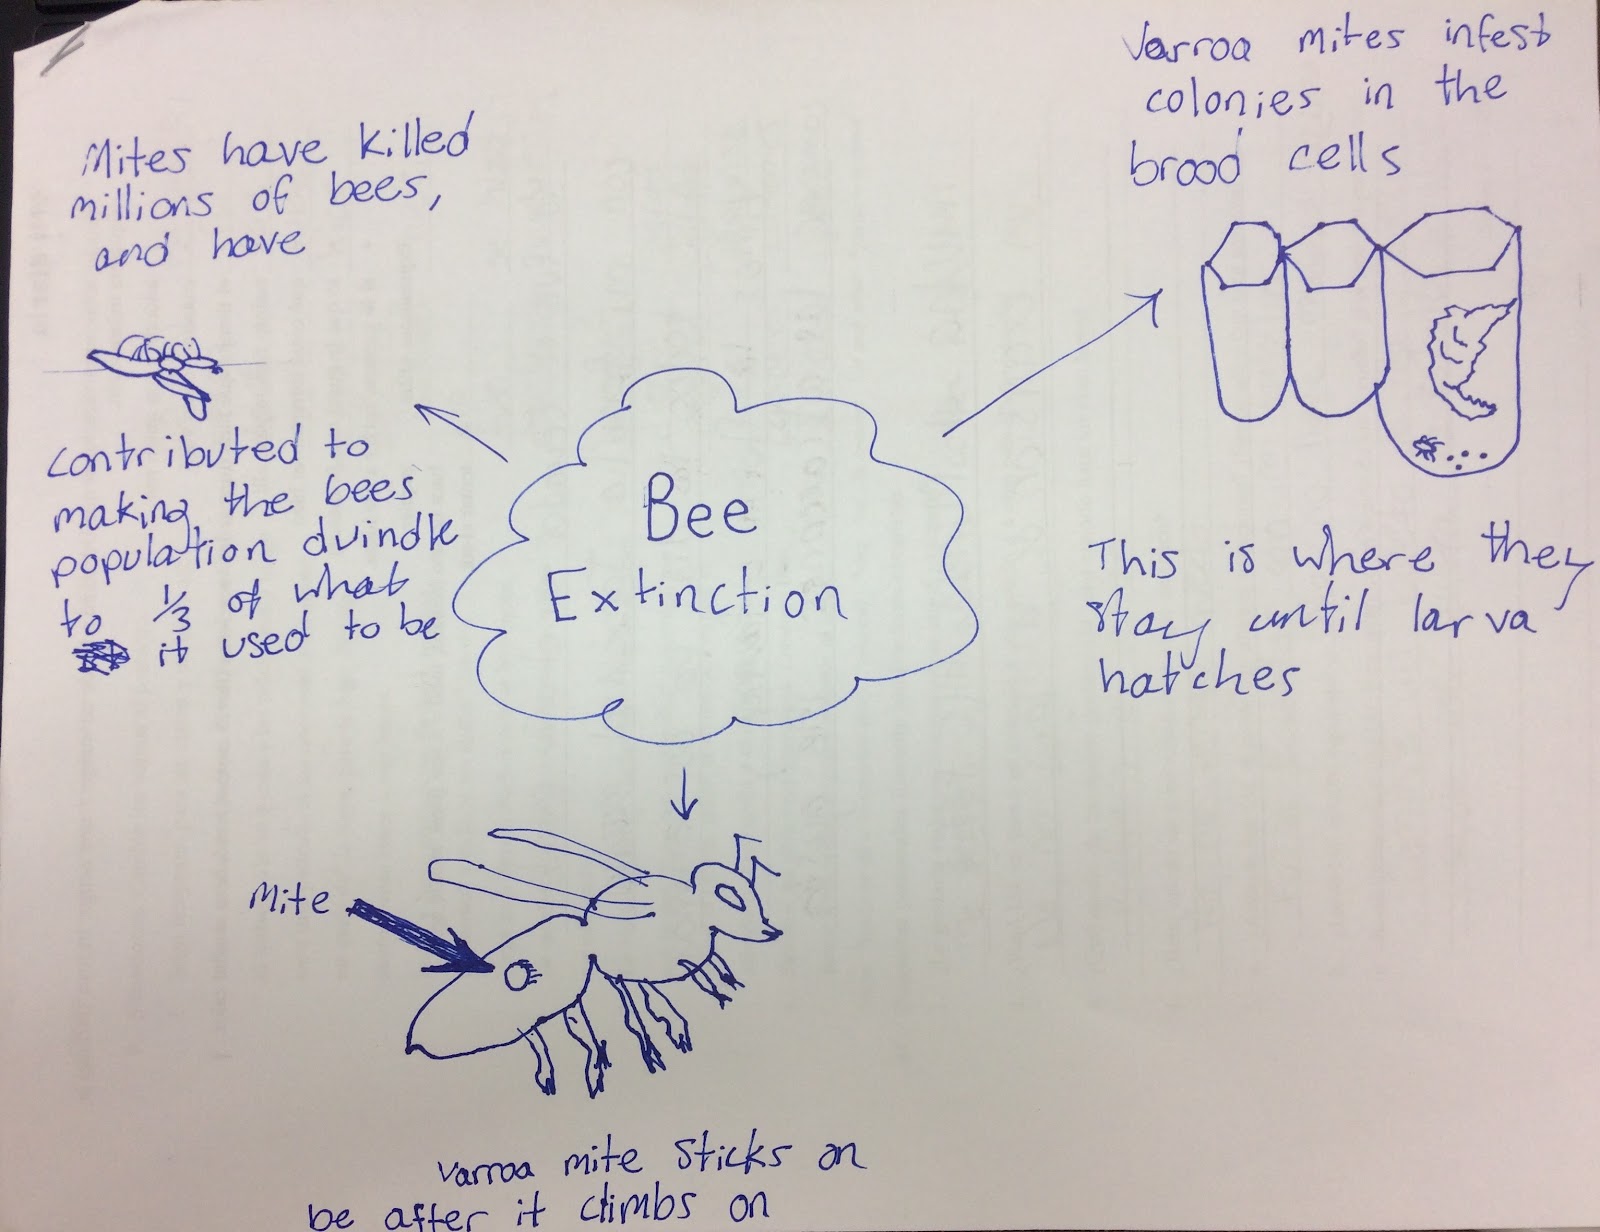 Mites have killed
millions of bees,
and have
contributed to
making the bees
population dwindle
to 1/3 of what
it used to be
Bee
Extinction
Varroa mites infest
colonies in the
brood cells
This is where they
stay until larva
hatches
Mite
Varroa mite sticks on
be after it climbs on